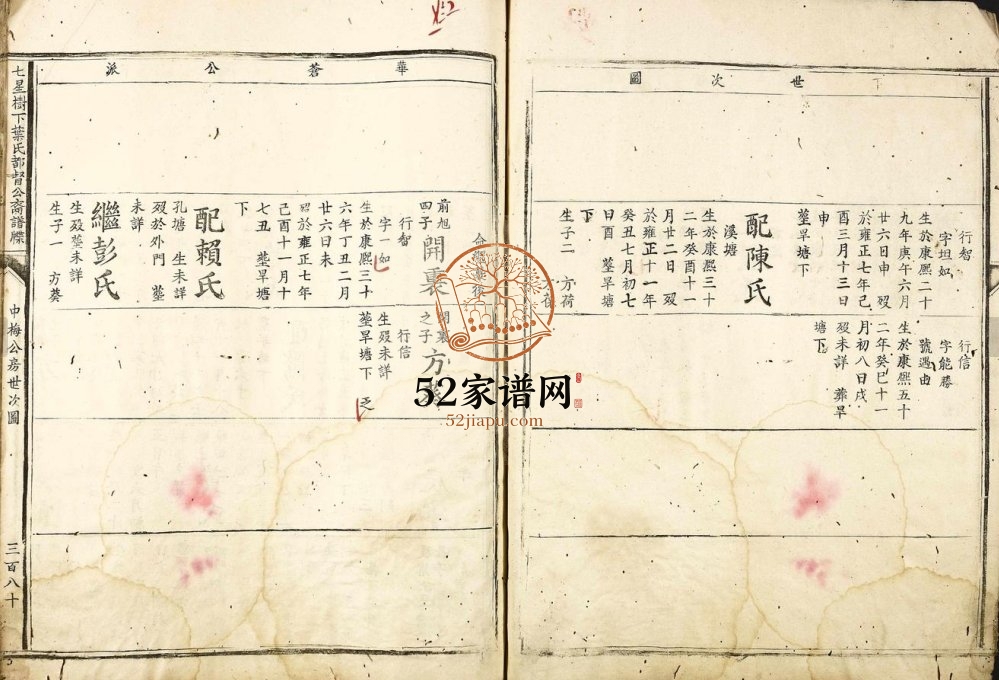 下世次圖
行智
字坦如
生於康熙二十
九年庚午六月
廿六日申 歿
於雍正七年己
酉三月十三日
申
塟旱塘下
配陳氏
溪塘
生於康熙三十
二年癸酉十一
月廿二日 歿
於雍正十一年
癸丑七月初七
日酉 塟旱塘
下
生子二 方荷
行信
字能勝
號遇由
生於康熙五十
二年癸巳十一
月初八日戌
歿未詳 葬旱
塘下
華蒼公派
前旭
四子
開裏
行智
字一如
生於康熙三十
六年丁丑二月
廿六日未
歿於雍正七年
己酉十一月十
七丑 塟旱塘
下
配賴氏
孔塘 生未詳
歿於外門 塟
未詳
繼彭氏
生歿塟未詳
生子一 方葵
之子
方
行信
生歿未詳
塟旱塘下 乏
七星樹下葉氏都督公裔譜牒
中梅公房世次圖
三百八十
52家谱网
52jiapu.com